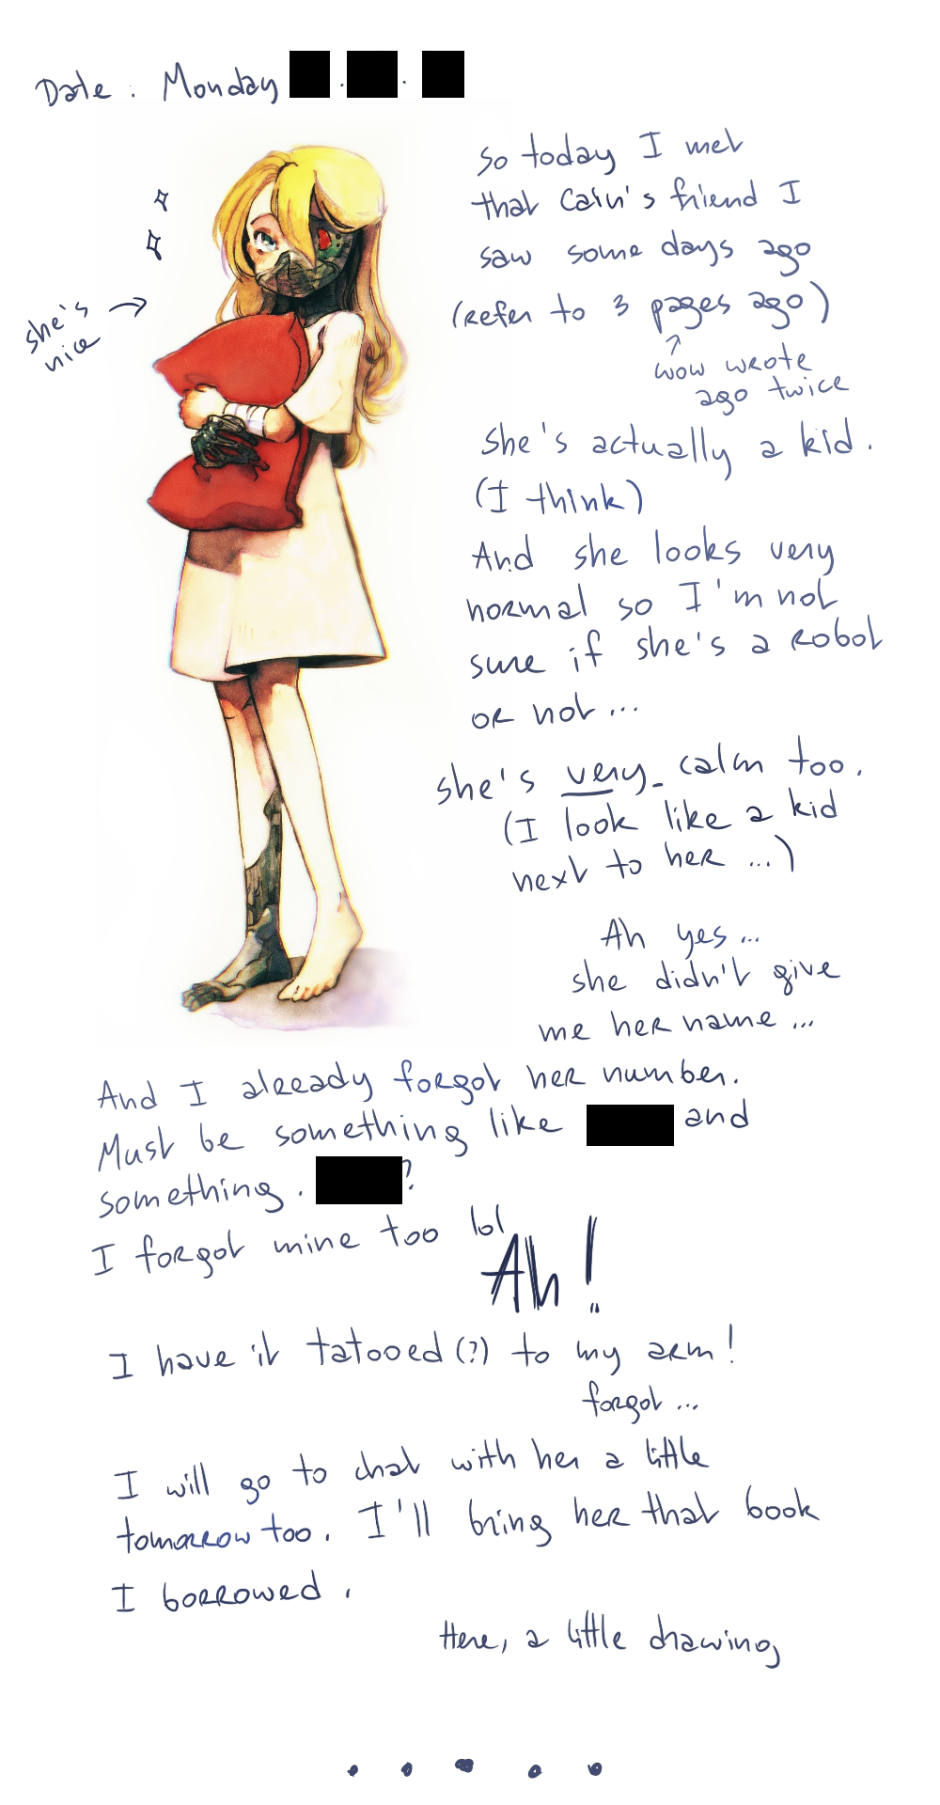 Date : Monday
So today I met
that Cain's friend I
saw some days ago
(refer to 3 pages ago)
wow wrote
ago twice
she's
nice
She's actually a kid.
(I think)
And she looks very
normal so I'm not
sure if she's a robot
or not...
she's very calm too.
(I look like a kid
next to her ...)
Ah yes...
she didn't give
me her name ...
And I already forgot her number.
Must be something like and
something. ?
I forgot mine too lol
Ah!
I have it tatooed (?) to my arm!
forgot ...
I will go to chat with her a little
tomorrow too. I'll bring her that book
I borrowed.
Here, a little drawing